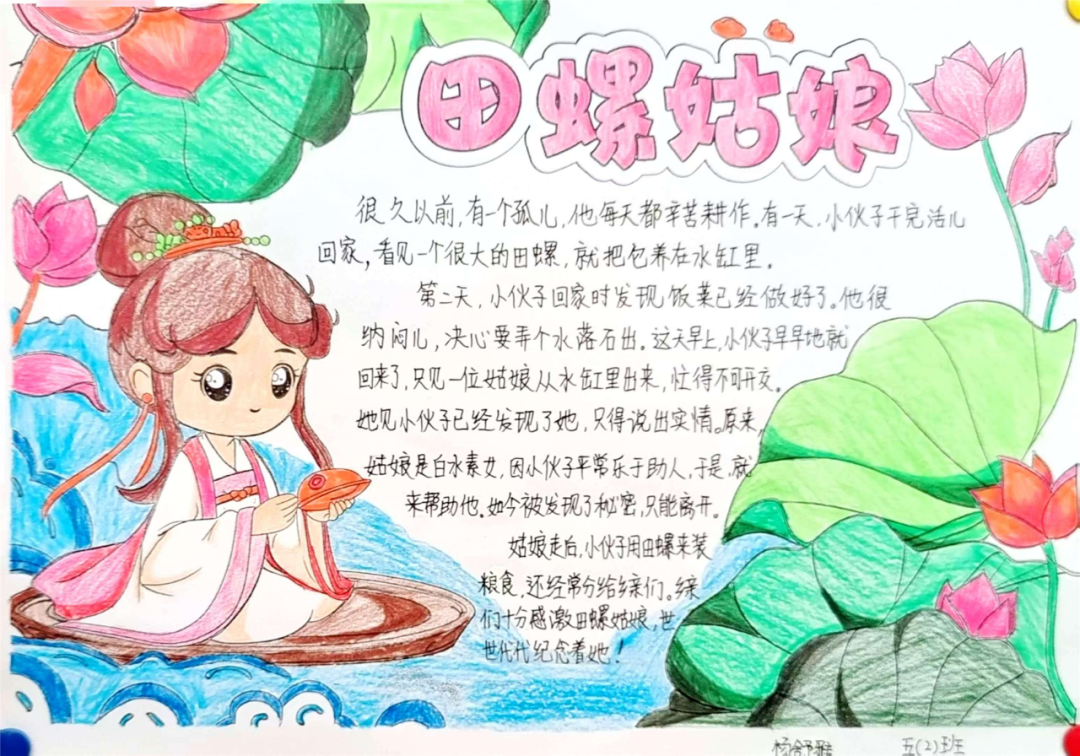 田螺姑娘
很久以前，有一个孤儿，他每天都辛苦耕作。有一天，小伙子干完活儿
回家，看见一个很大的田螺，就把包养在水缸里。
第二天，小伙子回家时发现饭菜已经做好了。他很
纳闷儿，决心要弄个水落石出。这天早上，小伙子早早地就
回来了，只见一位姑娘从水缸里出来，忙得不可开交。
她见小伙子已经发现了她，只得说出实情。原来，
姑娘是白水素女，因小伙子平常乐于助人，于是，就
来帮助他。如今被发现了秘密，只能离开。
姑娘走后，小伙子用田螺来装
粮食，还经常分给乡亲们。乡亲
们十分感激田螺姑娘，世
世代代纪念着她！
五(2)班